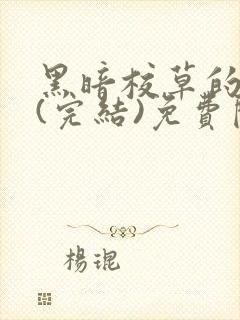 黑暗校草的
(完結)免費
楊琨